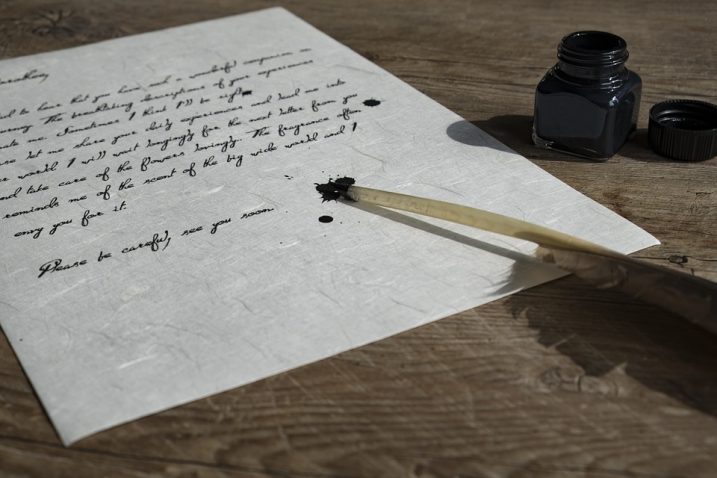 had to hear that you have such a wonderful companion on
The breathtaking descriptions of your experiences
me. Sometimes I that I'll to eight
let me share your daily experiences and lead me into
world I will wait longingly for the next letter from you
and take care of the flowers lovingly. The fragrance often
reminds me of the scent of the big wide world and I
envy you for it.
Please be careful, see you soon